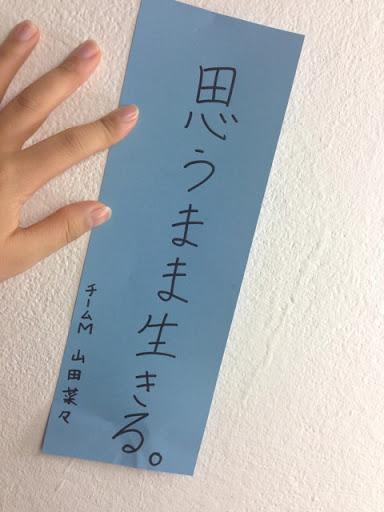 思うまま生きる。
チームM 山田菜々